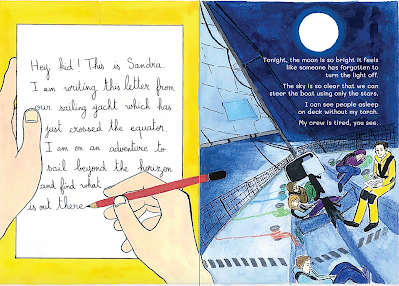 Hey kid! This is Sandra.
I am writing this letter from
our sailing yacht which has
just crossed the equator.
I am on an adventure to
sail beyond the horizon
and find what
is out there
Tonight, the moon is so bright it feels
like someone has forgotten to
turn the light off.
The sky is so clear that we can
steer the boat using only the stars.
I can see people asleep
on deck without my torch.
My crew is tired, you see.